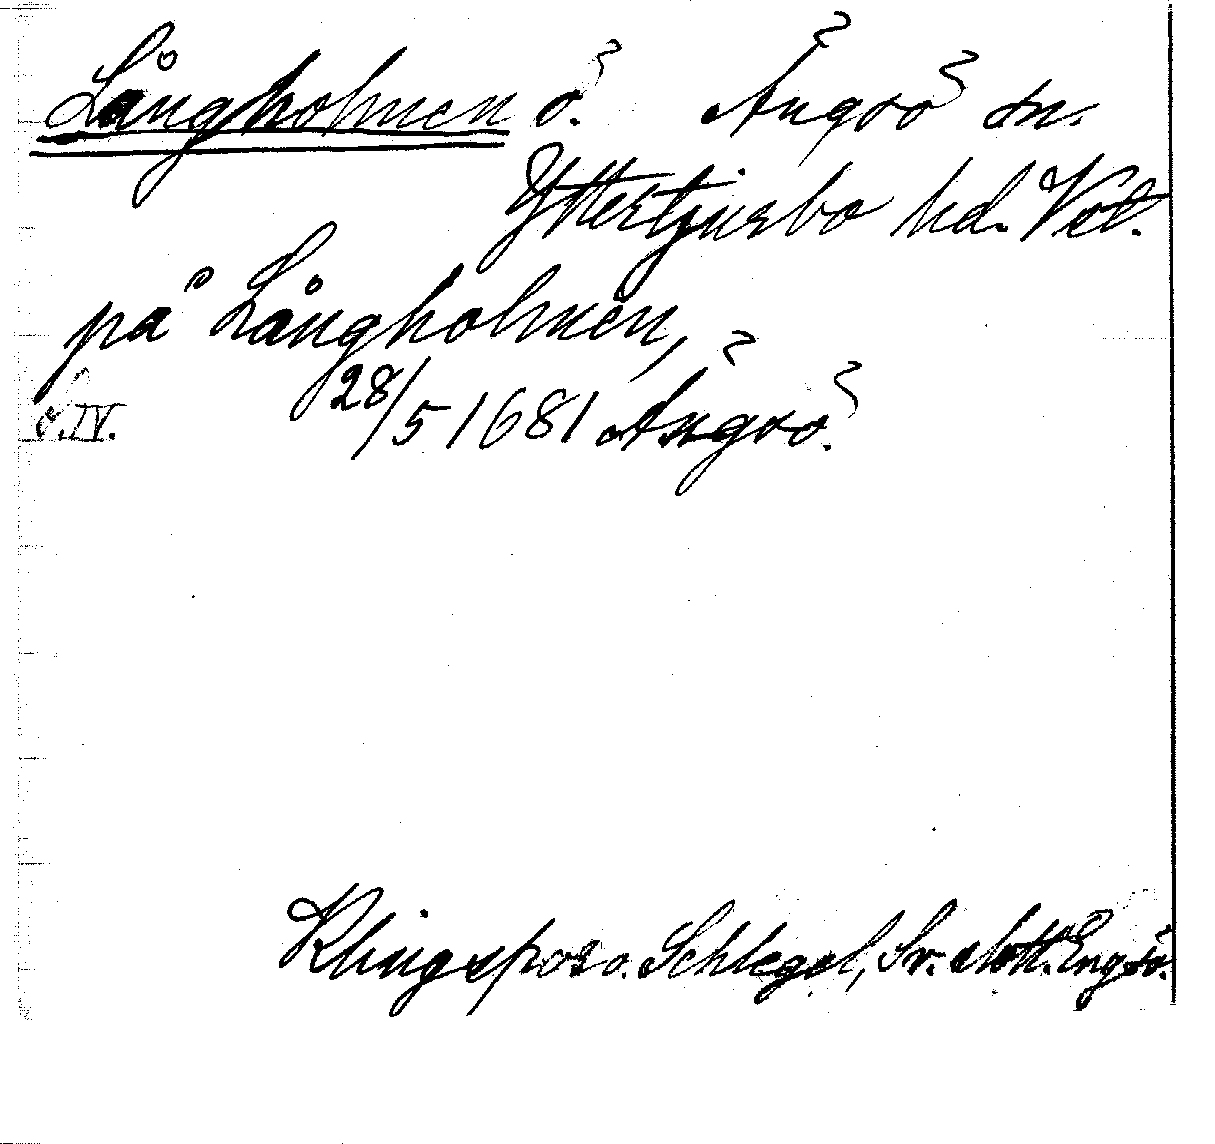 Långholmen ö. Ängsö sn.
Yttertjurbo hd. Vstl.
på Långholmen,
s.IV. 28/5 1681 Ängsö.
Klingspor o. Schlegel, Sv. slott. Engsö.